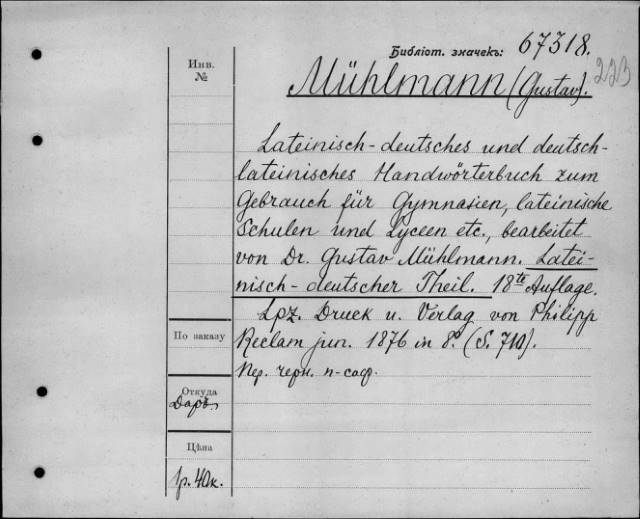 Библіот. значекъ: 67318.
223
Инв.
№
Mühlmann (Gustav).
Lateinisch-deutsches und deutsch-
lateinisches Handwörterbuch zum
Gebrauch für Gymnasien, lateinische
Schulen und Lyceen etc., bearbeitet
von Dr. Gustav Mühlmann. Latei-
nisch-deutscher Theil. 18te Auflage.
Lpz. Druck u. Verlag von Philipp
По заказу
Reclam jun. 1876 in 8º. (S. 710).
Пер. черн. п-саф.
Откуда
Даръ.
Цѣна
1р. 40к.